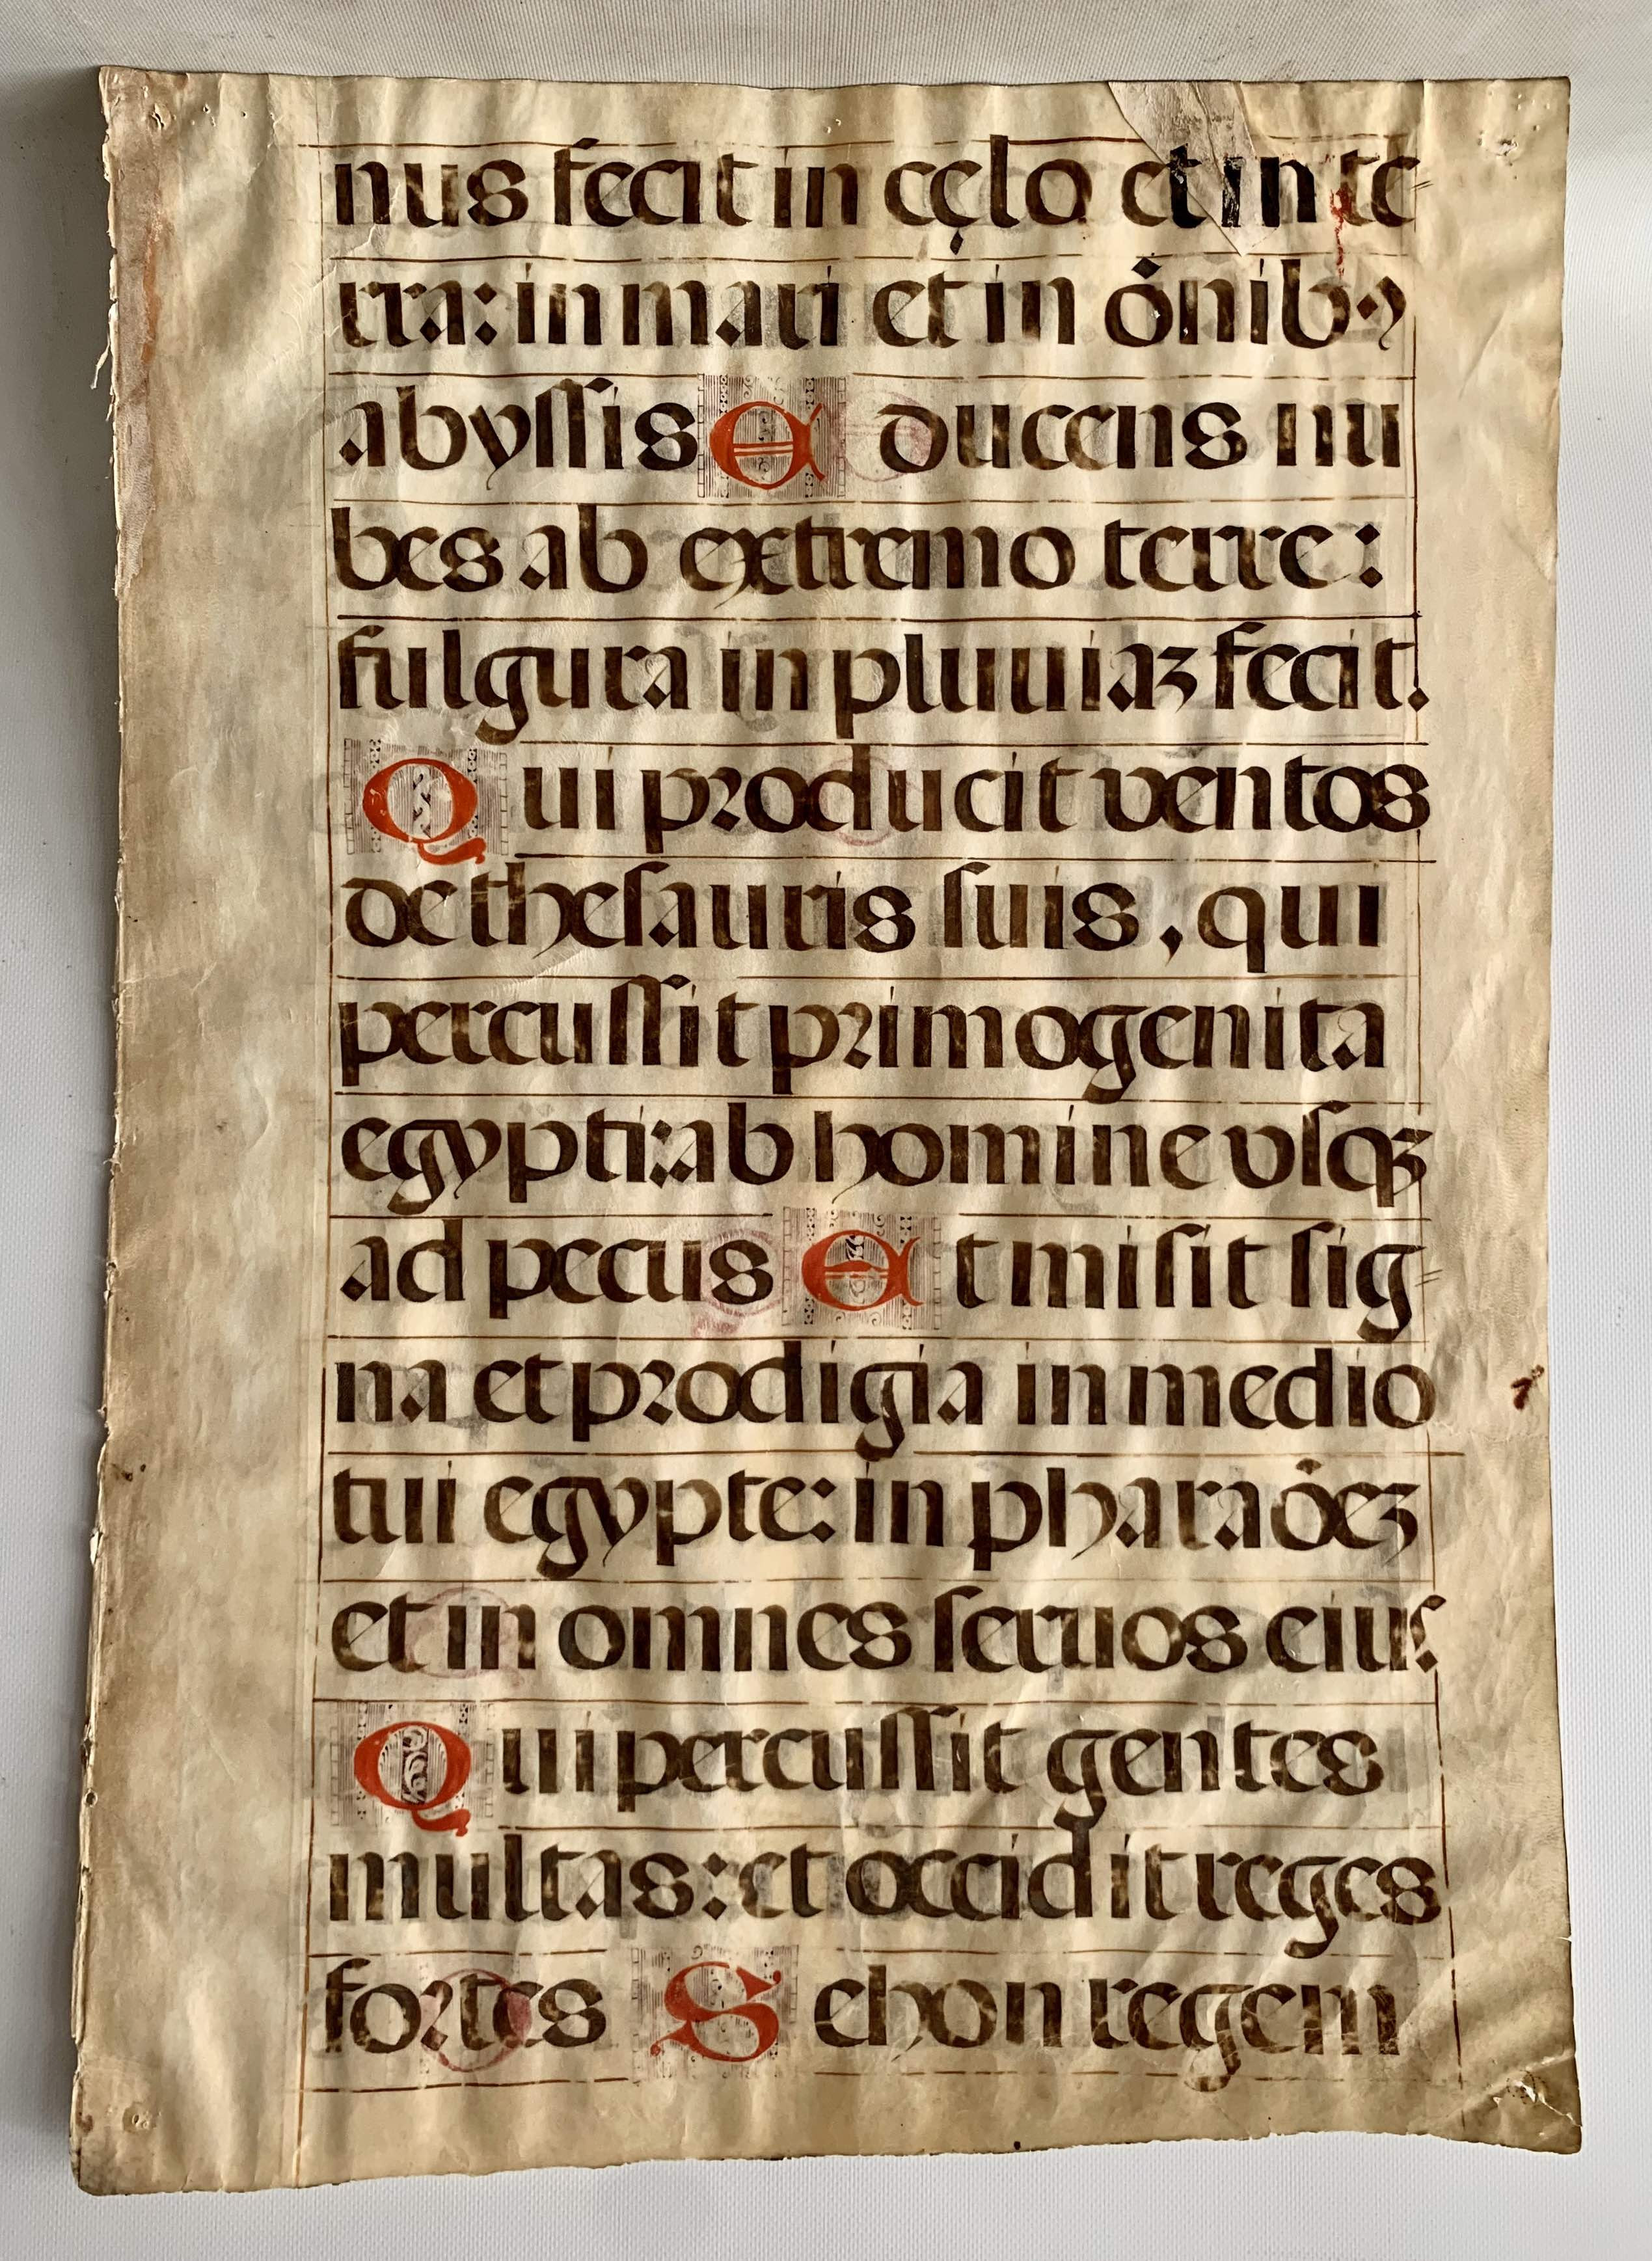 nus fecit in cęlo et in te=
rra: in mari et in o̊nibꝰ
abyſſis E ducens nu
bes ab extremo terre:
fulgura in pluuiaꝫ fecit.
Qui pꝛoducit ventos
de theſauris ſuis, qui
percuſſit pꝛimogenita
egypti: ab homine vſqꝫ
ad pecus Et miſit ſig=
na et pꝛodigia in medio
tui egypte: in pharao̊eꝫ
et in omnes ſeruos eiuſ.
Qui percuſſit gentes
multas: et occidit reges
foꝛtes Sehon regem